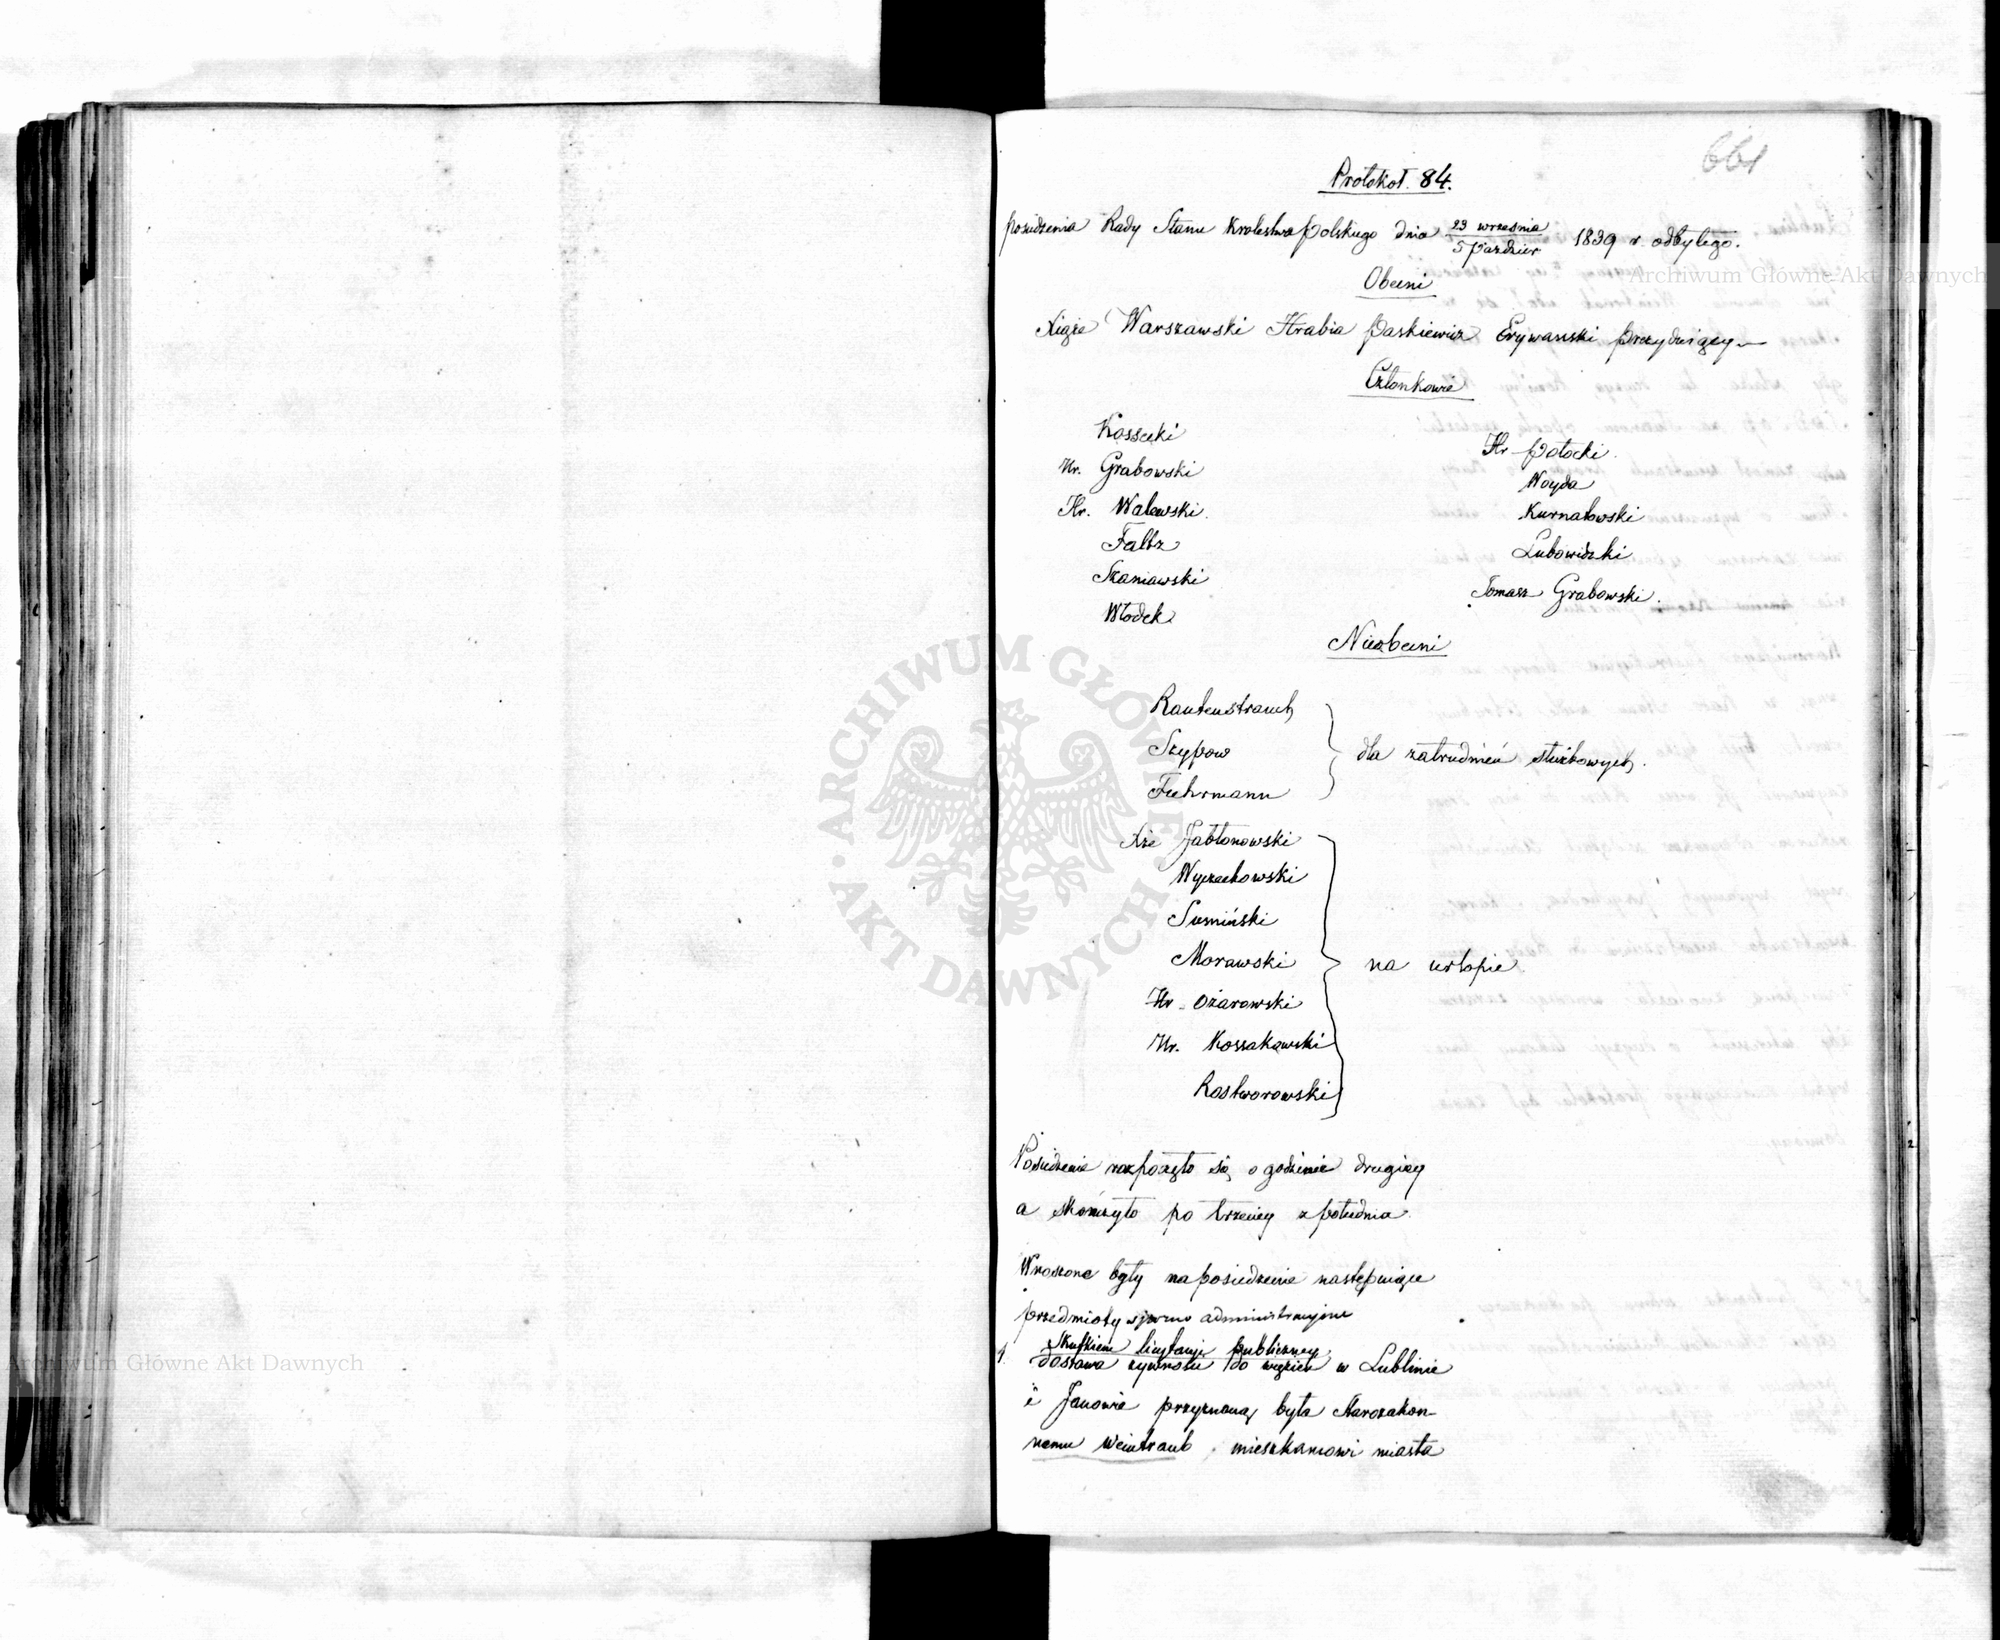 661
Protokoł. 84.
posiedzenia Rady Stanu Królestwa Polskiego dnia 23 września / 5 Paździer 1839 r. odbytego.
Obecni
Xiąże Warszawski Hrabia Paskiewicz Erywański Prezydujący
Członkowie
Kossecki
Hr. Potocki.
Hr. Grabowski
Woyda
Hr. Walewski.
Kurnatowski
Faltz
Lubowidzki
Szaniawski
Tomasz Grabowski.
Włodek
Nieobecni
Rautenstrauch
Szypow
dla zatrudnień służbowych.
Fuhrmann
Xże Jabłonowski
Wyczechowski
Sumiński
Morawski
na urlopie.
Hr. Ożarowski
Hr. Kossakowski
Rostworowski
Posiedzenie rozpoczęto się o godzinie drugiey
a skończyło po trzeciey z południa.
Wnoszone były na posiedzenie następujące
przedmioty sporno administracyjne
Skutkiem licytacyi publiczney
1. dostawa żywności do więzień w Lublinie
i Janowie przyznaną była Starozakon-
nemu Weintraub, mieszkańcowi miasta
ARCHIWUM GŁÓWNE AKT DAWNYCH
Archiwum Główne Akt Dawnych
Archiwum Główne Akt Dawnych